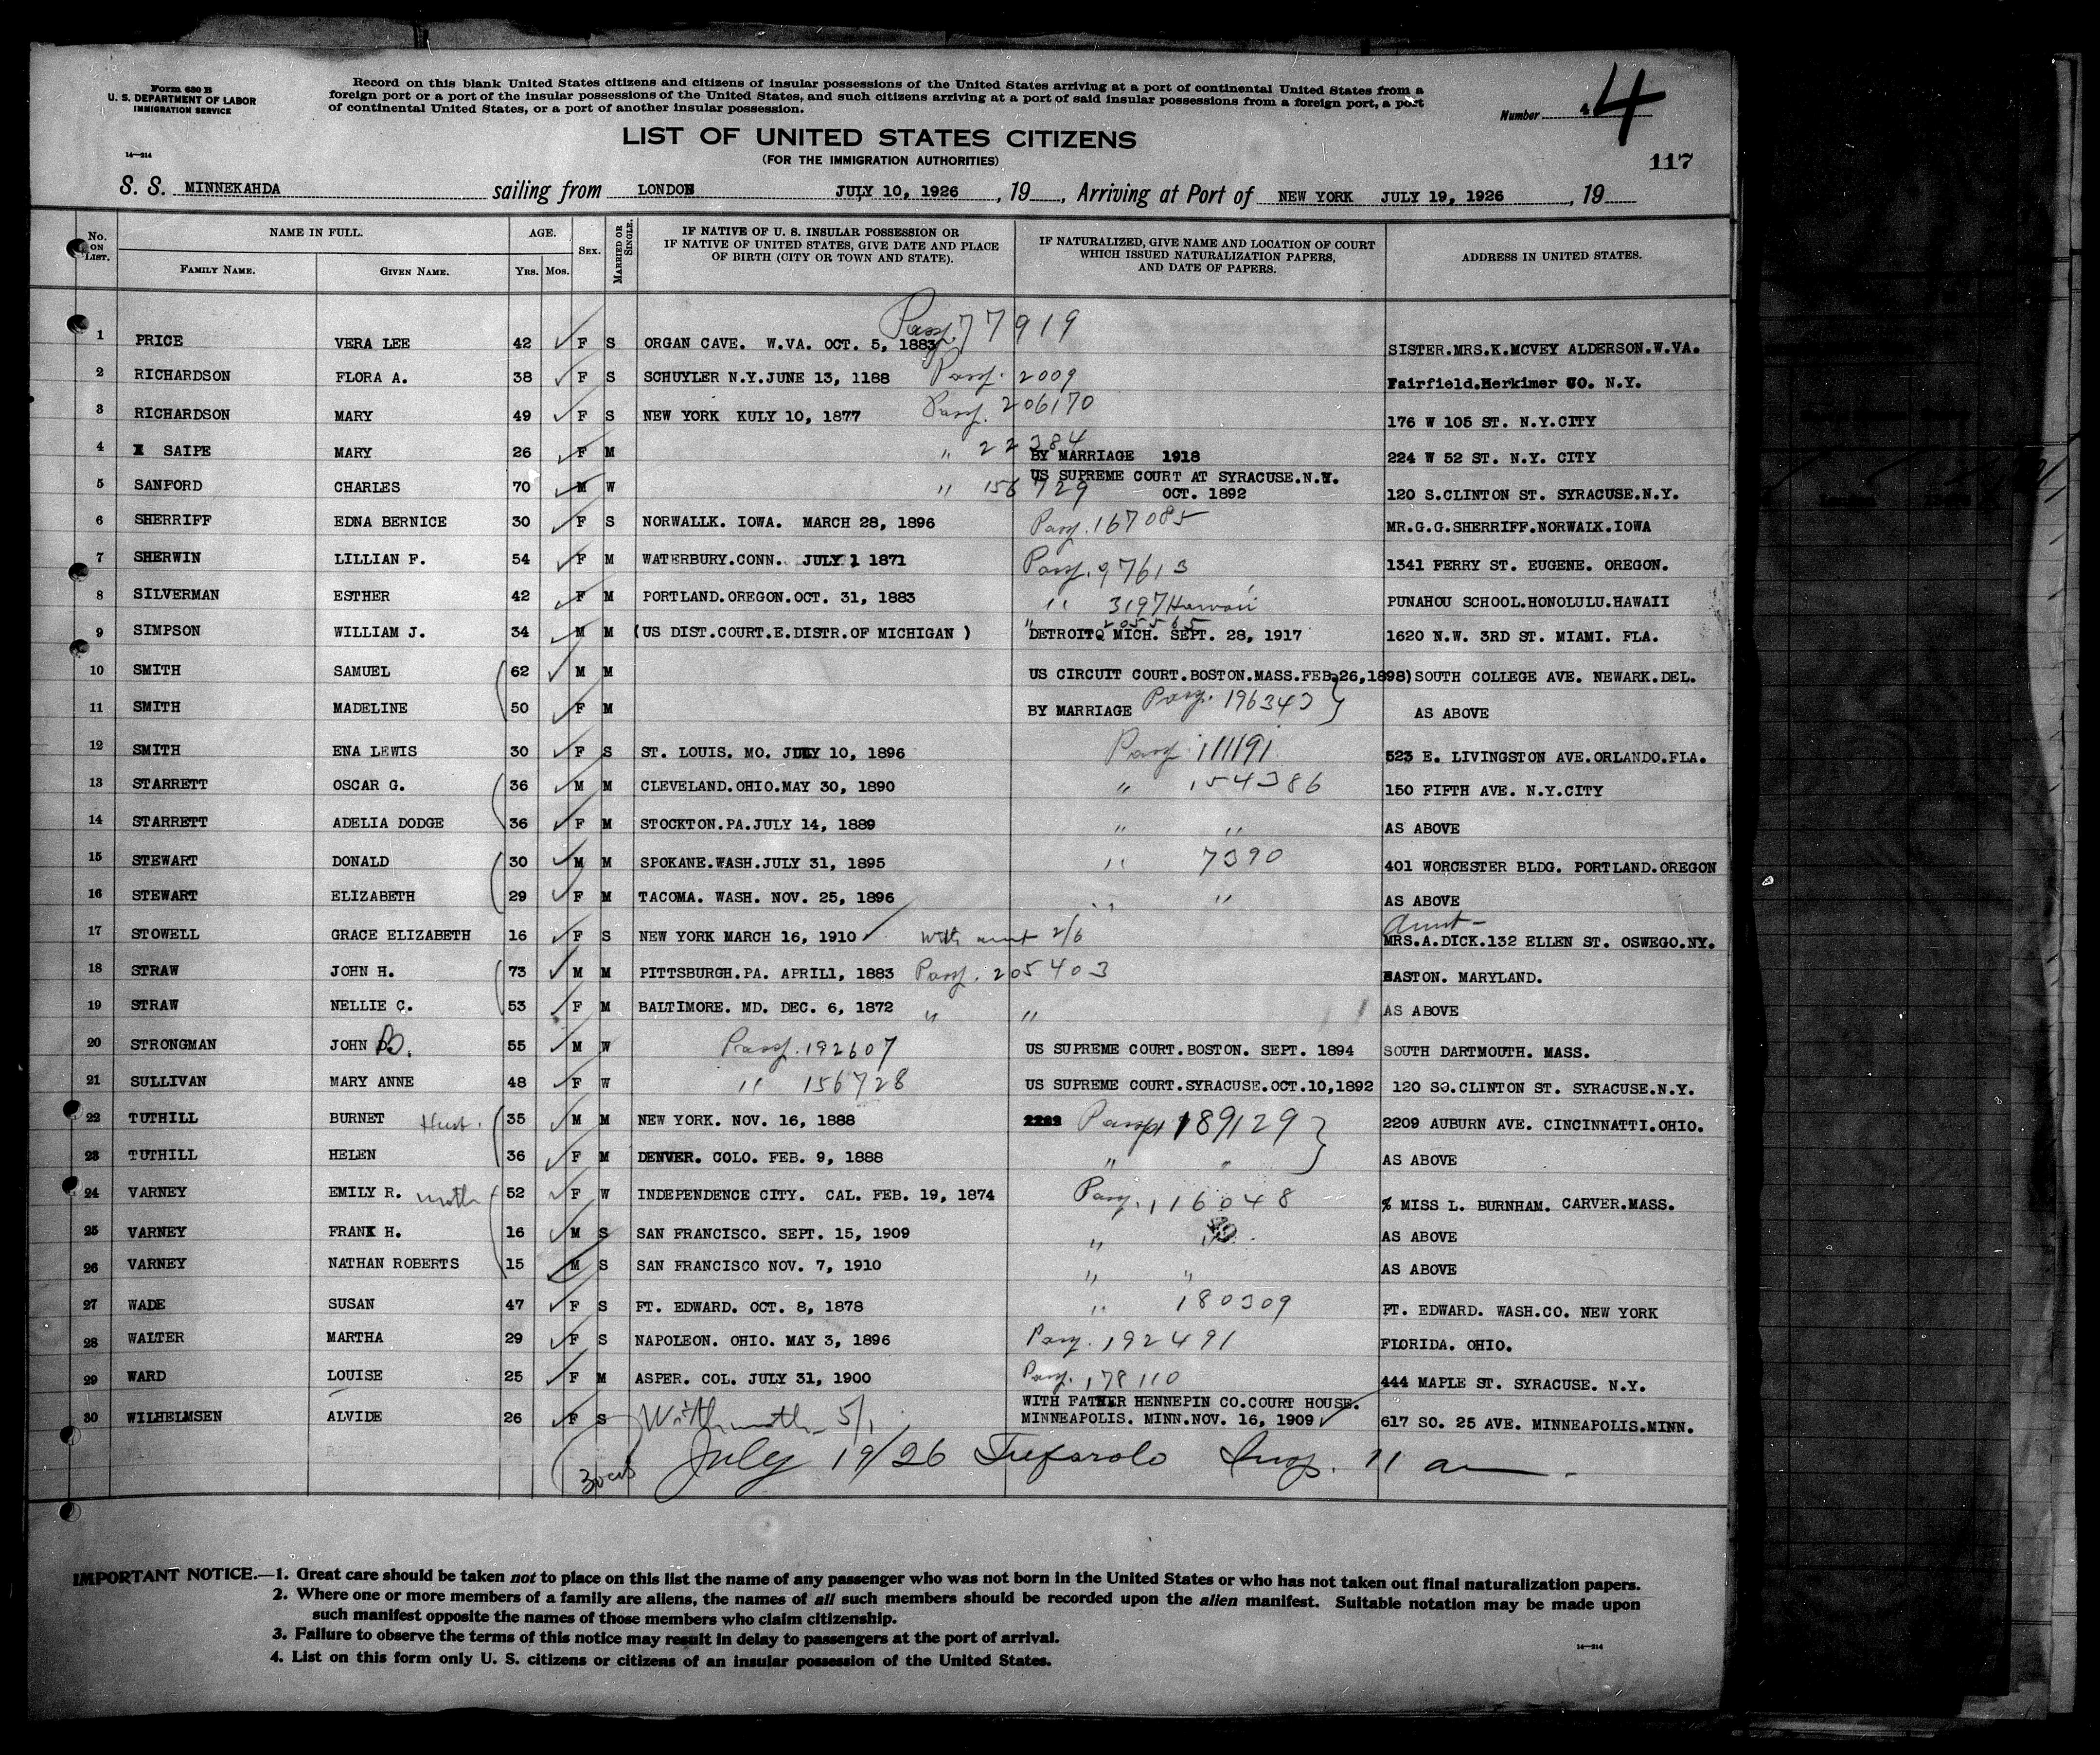 Form 630 B
U. S. DEPARTMENT OF LABOR
IMMIGRATION SERVICE
14—214
Record on this blank United States citizens and citizens of insular possessions of the United States arriving at a port of continental United States from a
foreign port or a port of the insular possessions of the United States, and such citizens arriving at a port of said insular possessions from a foreign port, a port
of continental United States, or a port of another insular possession.
Number 4 4
LIST OF UNITED STATES CITIZENS
(FOR THE IMMIGRATION AUTHORITIES)
117
S. S. MINNEKAHDA sailing from LONDON JULY 10, 1926 , 19 , Arriving at Port of NEW YORK JULY 19, 1926 , 19
No. ON LIST. NAME IN FULL. FAMILY NAME. GIVEN NAME. AGE. Yrs. Mos. SEX. MARRIED OR SINGLE. IF NATIVE OF U. S. INSULAR POSSESSION OR IF NATIVE OF UNITED STATES, GIVE DATE AND PLACE OF BIRTH (CITY OR TOWN AND STATE). IF NATURALIZED, GIVE NAME AND LOCATION OF COURT WHICH ISSUED NATURALIZATION PAPERS, AND DATE OF PAPERS. ADDRESS IN UNITED STATES.
1 PRICE VERA LEE 42 F S ORGAN CAVE. W.VA. OCT. 5, 1883 Pass. 77919 SISTER.MRS.K.MCVEY ALDERSON.W.VA.
2 RICHARDSON FLORA A. 38 F S SCHUYLER N.Y.JUNE 13, 1188 Pass. 2009 Fairfield.Herkimer CO. N.Y.
3 RICHARDSON MARY 49 F S NEW YORK KULY 10, 1877 Pass. 206170 176 W 105 ST. N.Y.CITY
4 X SAIPE MARY 26 F M " 22384 BY MARRIAGE 1918 224 W 52 ST. N.Y. CITY
5 SANFORD CHARLES 70 M W " 156729 US SUPREME COURT AT SYRACUSE.N.Y. OCT. 1892 120 S.CLINTON ST. SYRACUSE.N.Y.
6 SHERRIFF EDNA BERNICE 30 F S NORWALLK. IOWA. MARCH 28, 1896 Pass. 167085 MR.G.G.SHERRIFF.NORWALK.IOWA
7 SHERWIN LILLIAN F. 54 F M WATERBURY.CONN. JULY 1 1871 Pass. 97613 1341 FERRY ST. EUGENE. OREGON.
8 SILVERMAN ESTHER 42 F M PORTLAND.OREGON.OCT. 31, 1883 " 3197 Hawaii PUNAHOU SCHOOL.HONOLULU.HAWAII
9 SIMPSON WILLIAM J. 34 M M (US DIST.COURT.E.DISTR.OF MICHIGAN ) " 205565 DETROITQ MICH. SEPT. 28, 1917 1620 N.W. 3RD ST. MIAMI. FLA.
10 SMITH SAMUEL 62 M M US CIRCUIT COURT.BOSTON.MASS.FEB.26,1898) SOUTH COLLEGE AVE. NEWARK.DEL.
11 SMITH MADELINE 50 F M BY MARRIAGE Pass. 196343 AS ABOVE
12 SMITH ENA LEWIS 30 F S ST. LOUIS. MO. JULY 10, 1896 Pass. 111191 523 E. LIVINGSTON AVE.ORLANDO.FLA.
13 STARRETT OSCAR G. 36 M M CLEVELAND.OHIO.MAY 30, 1890 " 154386 150 FIFTH AVE. N.Y.CITY
14 STARRETT ADELIA DODGE 36 F M STOCKTON.PA.JULY 14, 1889 " " AS ABOVE
15 STEWART DONALD 30 M M SPOKANE.WASH.JULY 31, 1895 " 7390 401 WORCESTER BLDG. PORTLAND.OREGON
16 STEWART ELIZABETH 29 F M TACOMA. WASH. NOV. 25, 1896 " " AS ABOVE
17 STOWELL GRACE ELIZABETH 16 F S NEW YORK MARCH 16, 1910 With aunt 2/6 Aunt — MRS.A.DICK.132 ELLEN ST. OSWEGO.NY.
18 STRAW JOHN H. 73 M M PITTSBURGH.PA. APRIL1, 1883 Pass. 205403 EASTON. MARYLAND.
19 STRAW NELLIE C. 53 F M BALTIMORE. MD. DEC. 6, 1872 " " AS ABOVE
20 STRONGMAN JOHN D. 55 M W Pass. 192607 US SUPREME COURT.BOSTON. SEPT. 1894 SOUTH DARTMOUTH. MASS.
21 SULLIVAN MARY ANNE 48 F W " 156728 US SUPREME COURT.SYRACUSE.OCT.10,1892 120 SO.CLINTON ST. SYRACUSE.N.Y.
22 TUTHILL BURNET Hust. 35 M M NEW YORK. NOV. 16, 1888 2209 Passpt 189129 2209 AUBURN AVE. CINCINNATTI.OHIO.
23 TUTHILL HELEN 36 F M DENVER. COLO. FEB. 9, 1888 " " AS ABOVE
24 VARNEY EMILY R. moth 52 F W INDEPENDENCE CITY. CAL. FEB. 19, 1874 Pass. 116048 % MISS L. BURNHAM. CARVER.MASS.
25 VARNEY FRANK H. 16 M S SAN FRANCISCO. SEPT. 15, 1909 " AS ABOVE
26 VARNEY NATHAN ROBERTS 15 M S SAN FRANCISCO NOV. 7, 1910 " " AS ABOVE
27 WADE SUSAN 47 F S FT. EDWARD. OCT. 8, 1878 " 180309 FT. EDWARD. WASH.CO. NEW YORK
28 WALTER MARTHA 29 F S NAPOLEON. OHIO. MAY 3, 1896 Pass. 192491 FLORIDA. OHIO.
29 WARD LOUISE 25 F M ASPER. COL. JULY 31, 1900 Pass. 178110 444 MAPLE ST. SYRACUSE. N.Y.
30 WILHELMSEN ALVIDE 26 F S With moth 5/1 WITH FATHER HENNEPIN CO.COURT HOUSE. MINNEAPOLIS. MINN.NOV. 16, 1909 617 SO. 25 AVE. MINNEAPOLIS.MINN.
July 19/26 Insp. 11 am
IMPORTANT NOTICE.—1. Great care should be taken not to place on this list the name of any passenger who was not born in the United States or who has not taken out final naturalization papers.
2. Where one or more members of a family are aliens, the names of all such members should be recorded upon the alien manifest. Suitable notation may be made upon
such manifest opposite the names of those members who claim citizenship.
3. Failure to observe the terms of this notice may result in delay to passengers at the port of arrival.
4. List on this form only U. S. citizens or citizens of an insular possession of the United States.
14—214